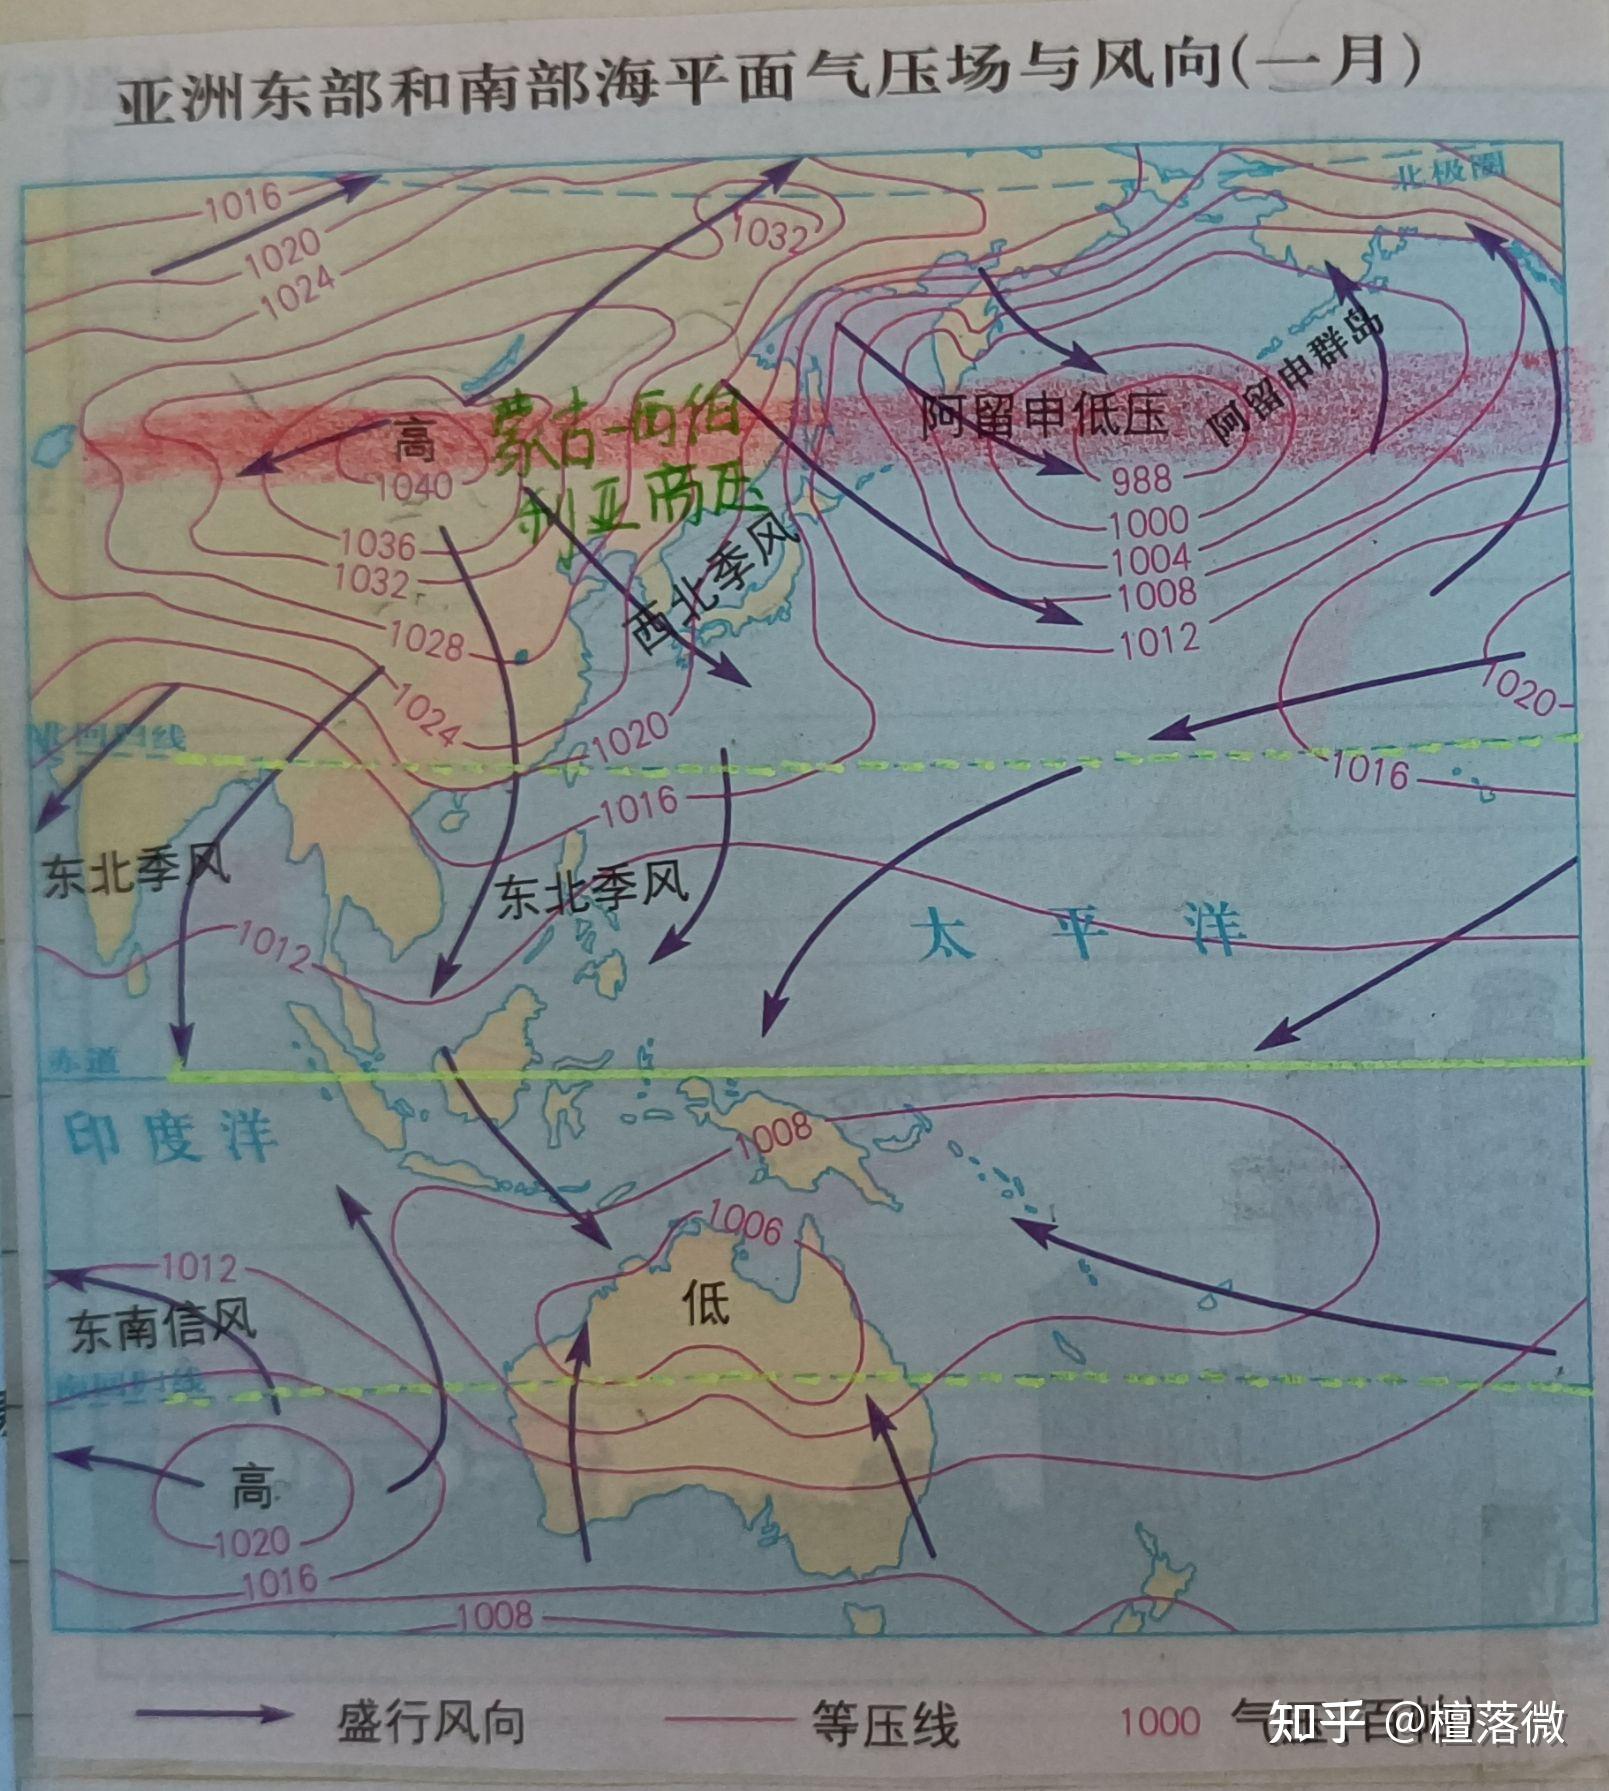 亚洲东部和南部海平面气压场与风向(一月)
北极圈
1016
1020
1024
1032
高
1040
蒙古-西伯
利亚高压
阿留申低压
阿留申群岛
988
1000
1004
1008
1012
1036
1032
1028
1024
西北季风
1020
1016
1020
1016
北回归线
东北季风
东北季风
1012
太平洋
赤道
印度洋
1008
1006
低
1012
东南信风
南回归线
高
1020
1016
1008
盛行风向
等压线
1000
知乎 @檀落微